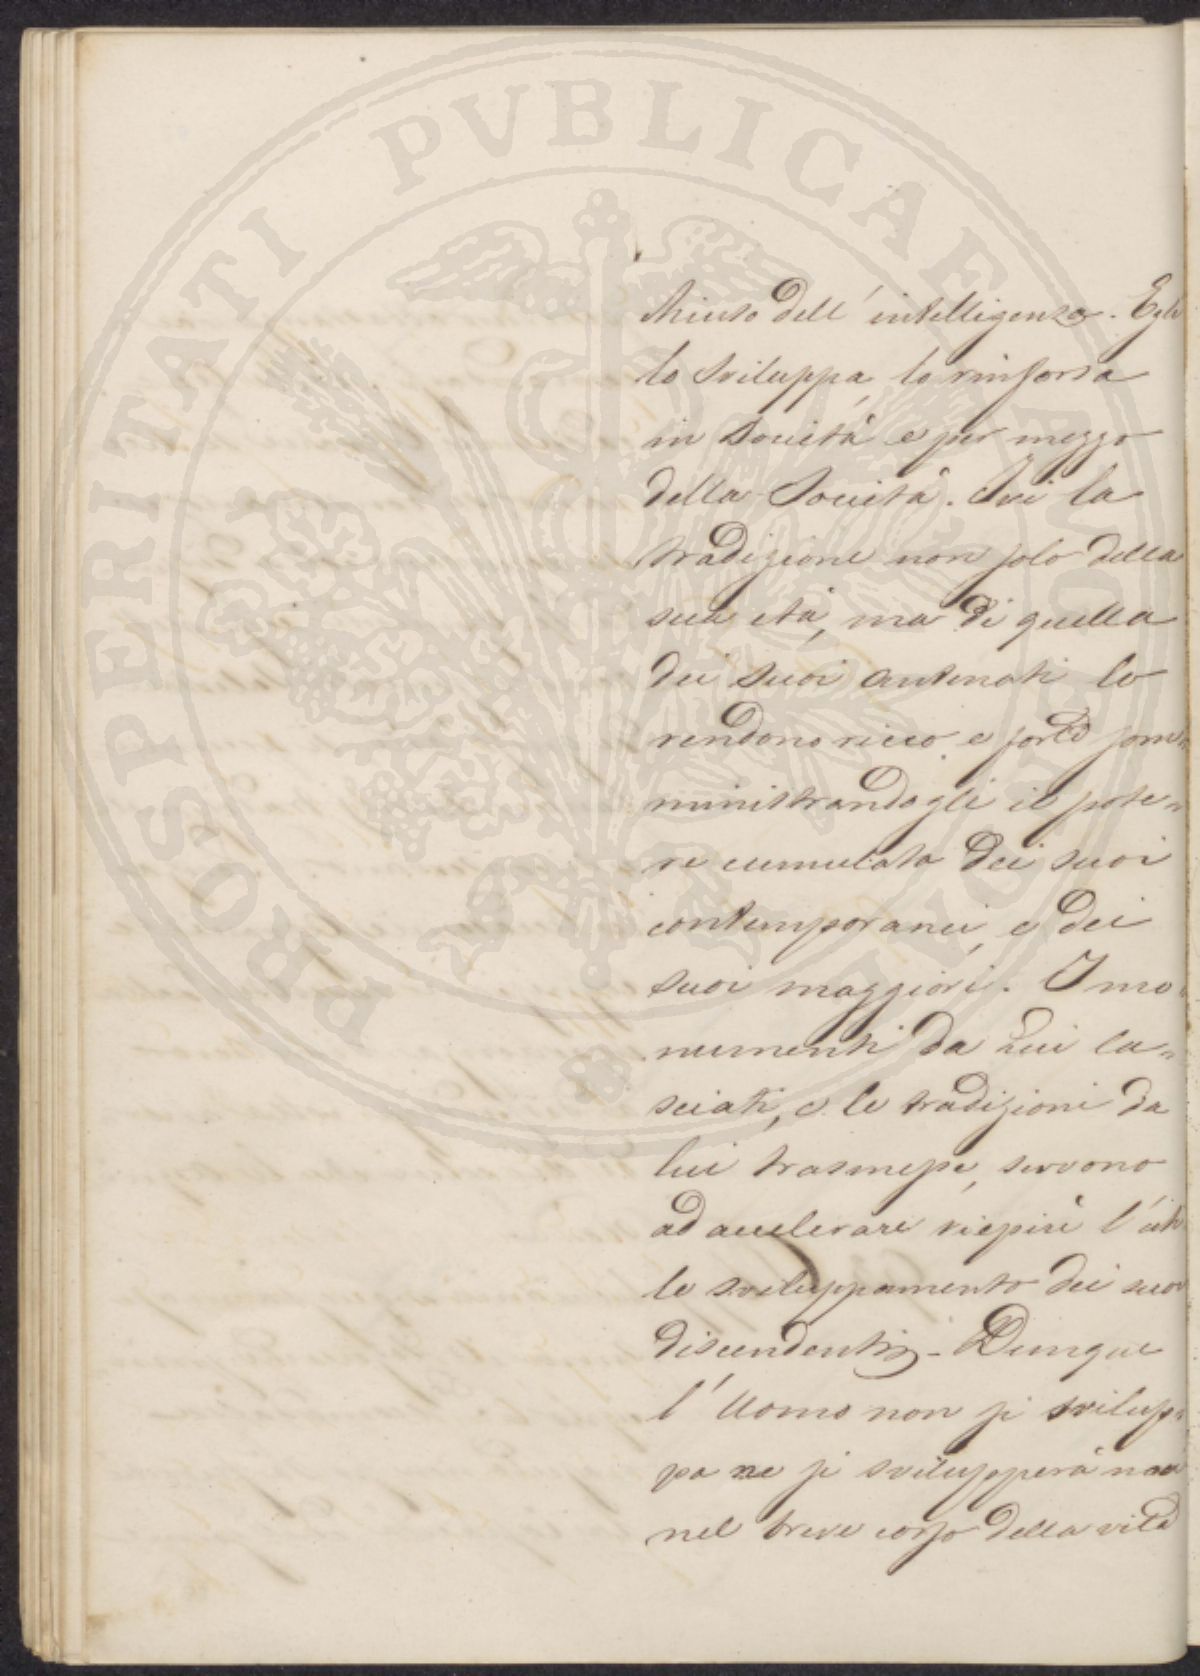 PROSPERITATI PVBLICAE
chiuso dell' intelligenza. Egli
lo sviluppa, lo rinforza
in Società e per mezzo
della Società. Ivi la
tradizione non solo della
sua età, ma di quella
dei suoi antenati lo
rendono ricco e forte som=
ministrandogli il pote=
re cumulato dei suoi
contemporanei, e dei
suoi maggiori. I mo=
numenti da Lui la=
sciati, e le tradizioni da
lui trasmesse, servono
ad accelerare vieppiù l'uti
le sviluppamento dei suoi
discendenti - Dunque
l' Uomo non si svilup=
pa ne si svilupperà mai
nel breve corso della vita